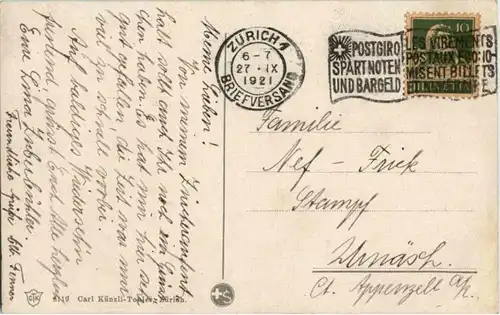 Meine Lieben!
Von meinem Züricheraufent-
halt sollt auch Ihr noch ein
chen haben. Es hat mir hier sehr
gut gefallen, die Zeit war nur
zu schnell vorbei.
Auf baldiges Wiedersehn
freuend, grüsst Euch Alle herzlich
Eure Lina
Freundliche Grüsse
ZÜRICH 1
6-7
27. IX
1921
BRIEFVERSAND
POSTGIRO
SPART NOTEN
UND BARGELD
LES VIREMENTS
POSTAUX ECONO-
MISENT BILLETS
10
HELVETIA
Familie
Nef - Frick
Stampf
Urnäsch.
Ct. Appenzell A/R.
Carl Künzli-Tobler, Zürich.